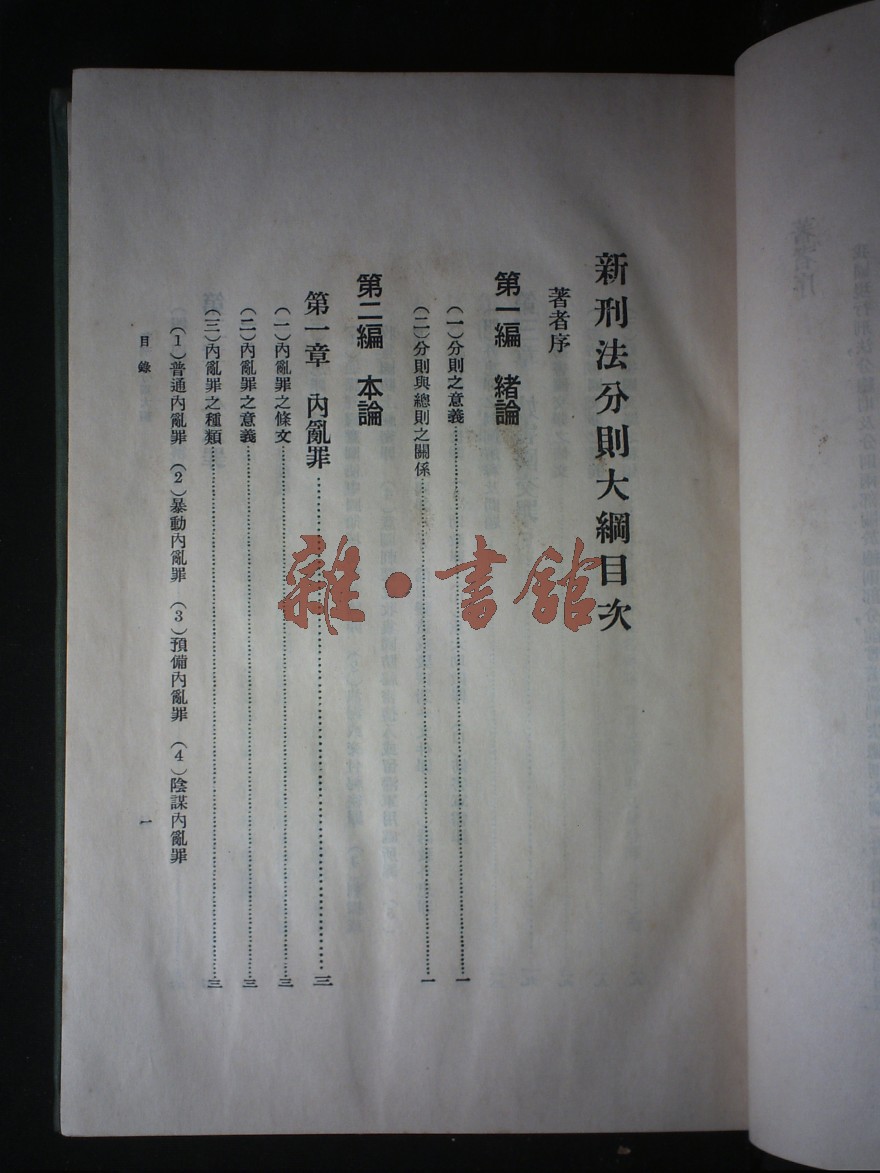 新刑法分則大綱目次
著者序
第一編　緒論
(一)分則之意義……一
(二)分則與總則之關係……一
第二編　本論
第一章　內亂罪……三
(一)內亂罪之條文……三
(二)內亂罪之意義……三
(三)內亂罪之種類……三
(1)普通內亂罪　(2)暴動內亂罪　(3)預備內亂罪　(4)陰謀內亂罪
目錄　一
雜·書館
著者序